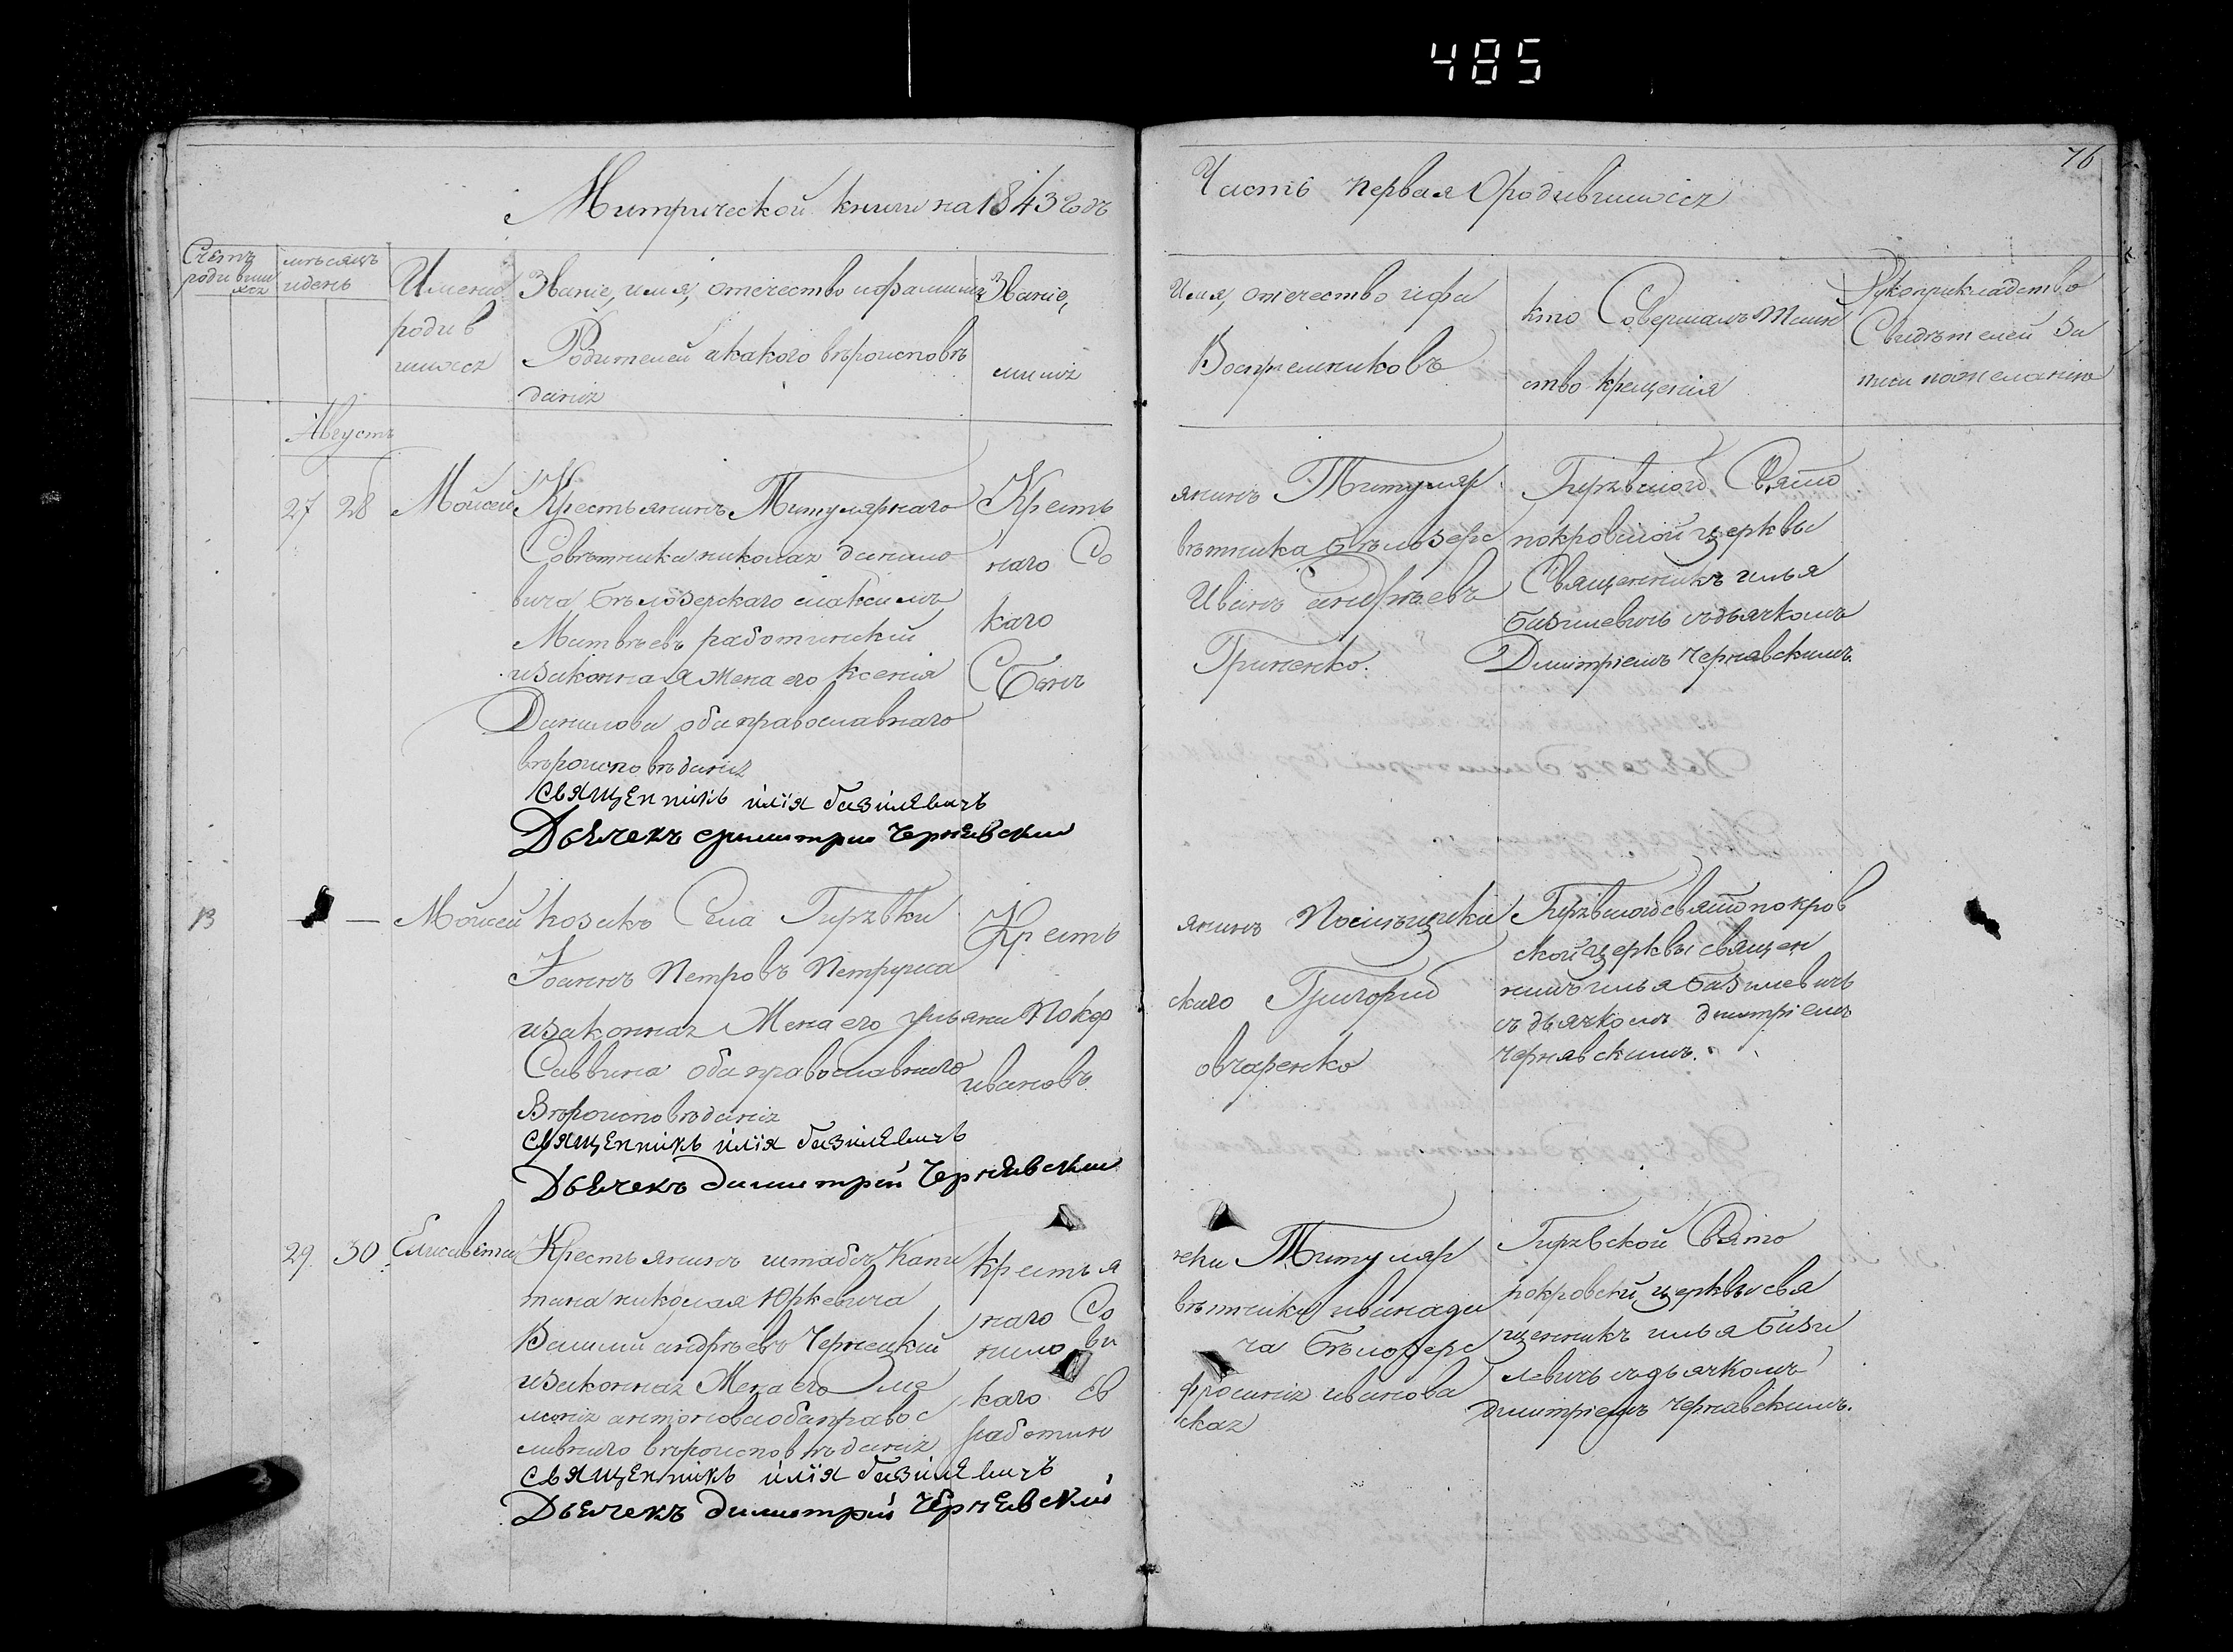 485
76
Митрической книги на 1843 годъ
Часть первая О родившихся
Счетъ родившихся
мѣсяцъ и день
Имена родившихся
Званіе, имя, отечество и фамилия
Родителей и какого вѣроисповѣ
данія
Званіе,
милія
Имя, отечество и фа
Воспреемниковъ
кто Совершалъ Таин
ство крещенія
Рукоприкладство
Свидѣтелей за
писи по желанію
Августъ
27 28 Мойсей Крестьянинъ Титулярнаго
Совѣтника николая данило
вича Бѣлозерскаго максимъ
Матвѣевъ работинскій
и законная жена его Ксенія
Данилова оба православнаго
вѣроисповѣданія
священникъ илія базилевичъ
Дьячекъ димитрий Чернявский
Кресть
наго Со
каго
янинъ Титуляр
вѣтника Бѣлозерс
Иванъ андрѣевъ
Гриненко.
Гирявской Свято
покровской церквы
Священникъ илья
базилевичъ съ дьячкомъ
Димитріемъ чернявскимъ.
13 — — Мойсей козакъ Села Гирявки
Іоаннъ Петровъ Петруша
и законная Жена его ульяна
Саввина оба православнаго
Вѣроисповѣданія
священникъ илія базилевичъ
Дьячекъ димитрий Чернявский
Кресть
Покор
ивановъ
янинъ Посіпъщика
скаго Григорий
овчаренко
Гирявской святопокров
ской церквы священ
никъ илья базилевичъ
съ дьячкомъ димтріемъ
чернявскимъ.
29 30 Елисавета Крестьянинъ штабсъ Капи
тана николая Юркевича
Василий андрѣевъ Чернецкий
и законная Жена его
антонова оба правос
лавнаго вѣроисповѣданія
священникъ илія базилевичъ
Дьячекъ димитрий Чернявский
крестья
наго Со
нило ви
каго Ев
работин
нки Титуляр
вѣтника ивана да
ча Бѣлозерс
фросинія иванова
ская
Гирявской Свято
покровской церквы свя
щенникъ илья бази
левичъ съ дьячкомъ
димитріемъ чернявскимъ.